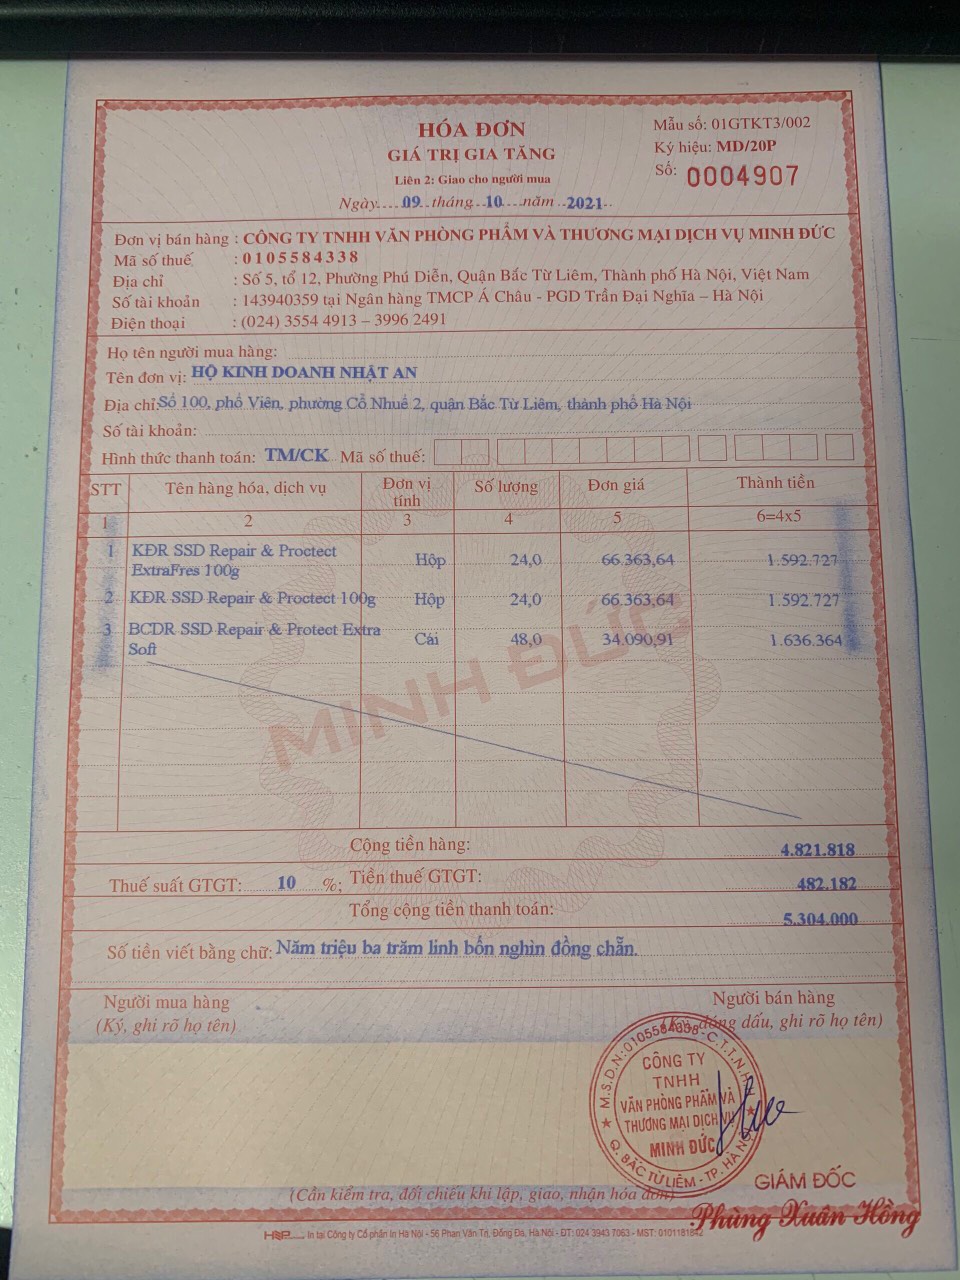 HÓA ĐƠN
GIÁ TRỊ GIA TĂNG
Liên 2: Giao cho người mua
Ngày....09..tháng..10....năm..2021..
Mẫu số: 01GTKT3/002
Ký hiệu: MD/20P
Số: 0004907
Đơn vị bán hàng : CÔNG TY TNHH VĂN PHÒNG PHẨM VÀ THƯƠNG MẠI DỊCH VỤ MINH ĐỨC
Mã số thuế : 0105584338
Địa chỉ : Số 5, tổ 12, Phường Phú Diễn, Quận Bắc Từ Liêm, Thành phố Hà Nội, Việt Nam
Số tài khoản : 143940359 tại Ngân hàng TMCP Á Châu - PGD Trần Đại Nghĩa – Hà Nội
Điện thoại : (024) 3554 4913 – 3996 2491
Họ tên người mua hàng:
Tên đơn vị: HỘ KINH DOANH NHẬT AN
Địa chỉ: Số 100, phố Viên, phường Cổ Nhuế 2, quận Bắc Từ Liêm, thành phố Hà Nội
Số tài khoản:
Hình thức thanh toán: TM/CK Mã số thuế:
STT Tên hàng hóa, dịch vụ Đơn vị tính Số lượng Đơn giá Thành tiền
1 2 3 4 5 6=4x5
1 KĐR SSD Repair & Proctect ExtraFres 100g Hộp 24,0 66.363,64 1.592.727
2 KĐR SSD Repair & Proctect 100g Hộp 24,0 66.363,64 1.592.727
3 BCDR SSD Repair & Protect Extra Soft Cái 48,0 34.090,91 1.636.364
MINH ĐỨC
Cộng tiền hàng: 4.821.818
Thuế suất GTGT: 10 %; Tiền thuế GTGT: 482.182
Tổng cộng tiền thanh toán: 5.304.000
Số tiền viết bằng chữ: Năm triệu ba trăm linh bốn nghìn đồng chẵn.
Người mua hàng
(Ký, ghi rõ họ tên)
Người bán hàng
(Ký, đóng dấu, ghi rõ họ tên)
M.S.D.N:0105584338-C.T.T.N.H.H
CÔNG TY
TNHH
VĂN PHÒNG PHẨM VÀ
THƯƠNG MẠI DỊCH VỤ
MINH ĐỨC
Q. BẮC TỪ LIÊM - TP. HÀ NỘI
GIÁM ĐỐC
Phùng Xuân Hồng
(Cần kiểm tra, đối chiếu khi lập, giao, nhận hóa đơn)
In tại Công ty Cổ phần In Hà Nội - 56 Phan Văn Trị, Đống Đa, Hà Nội - ĐT: 024 3943 7063 - MST: 0101181842